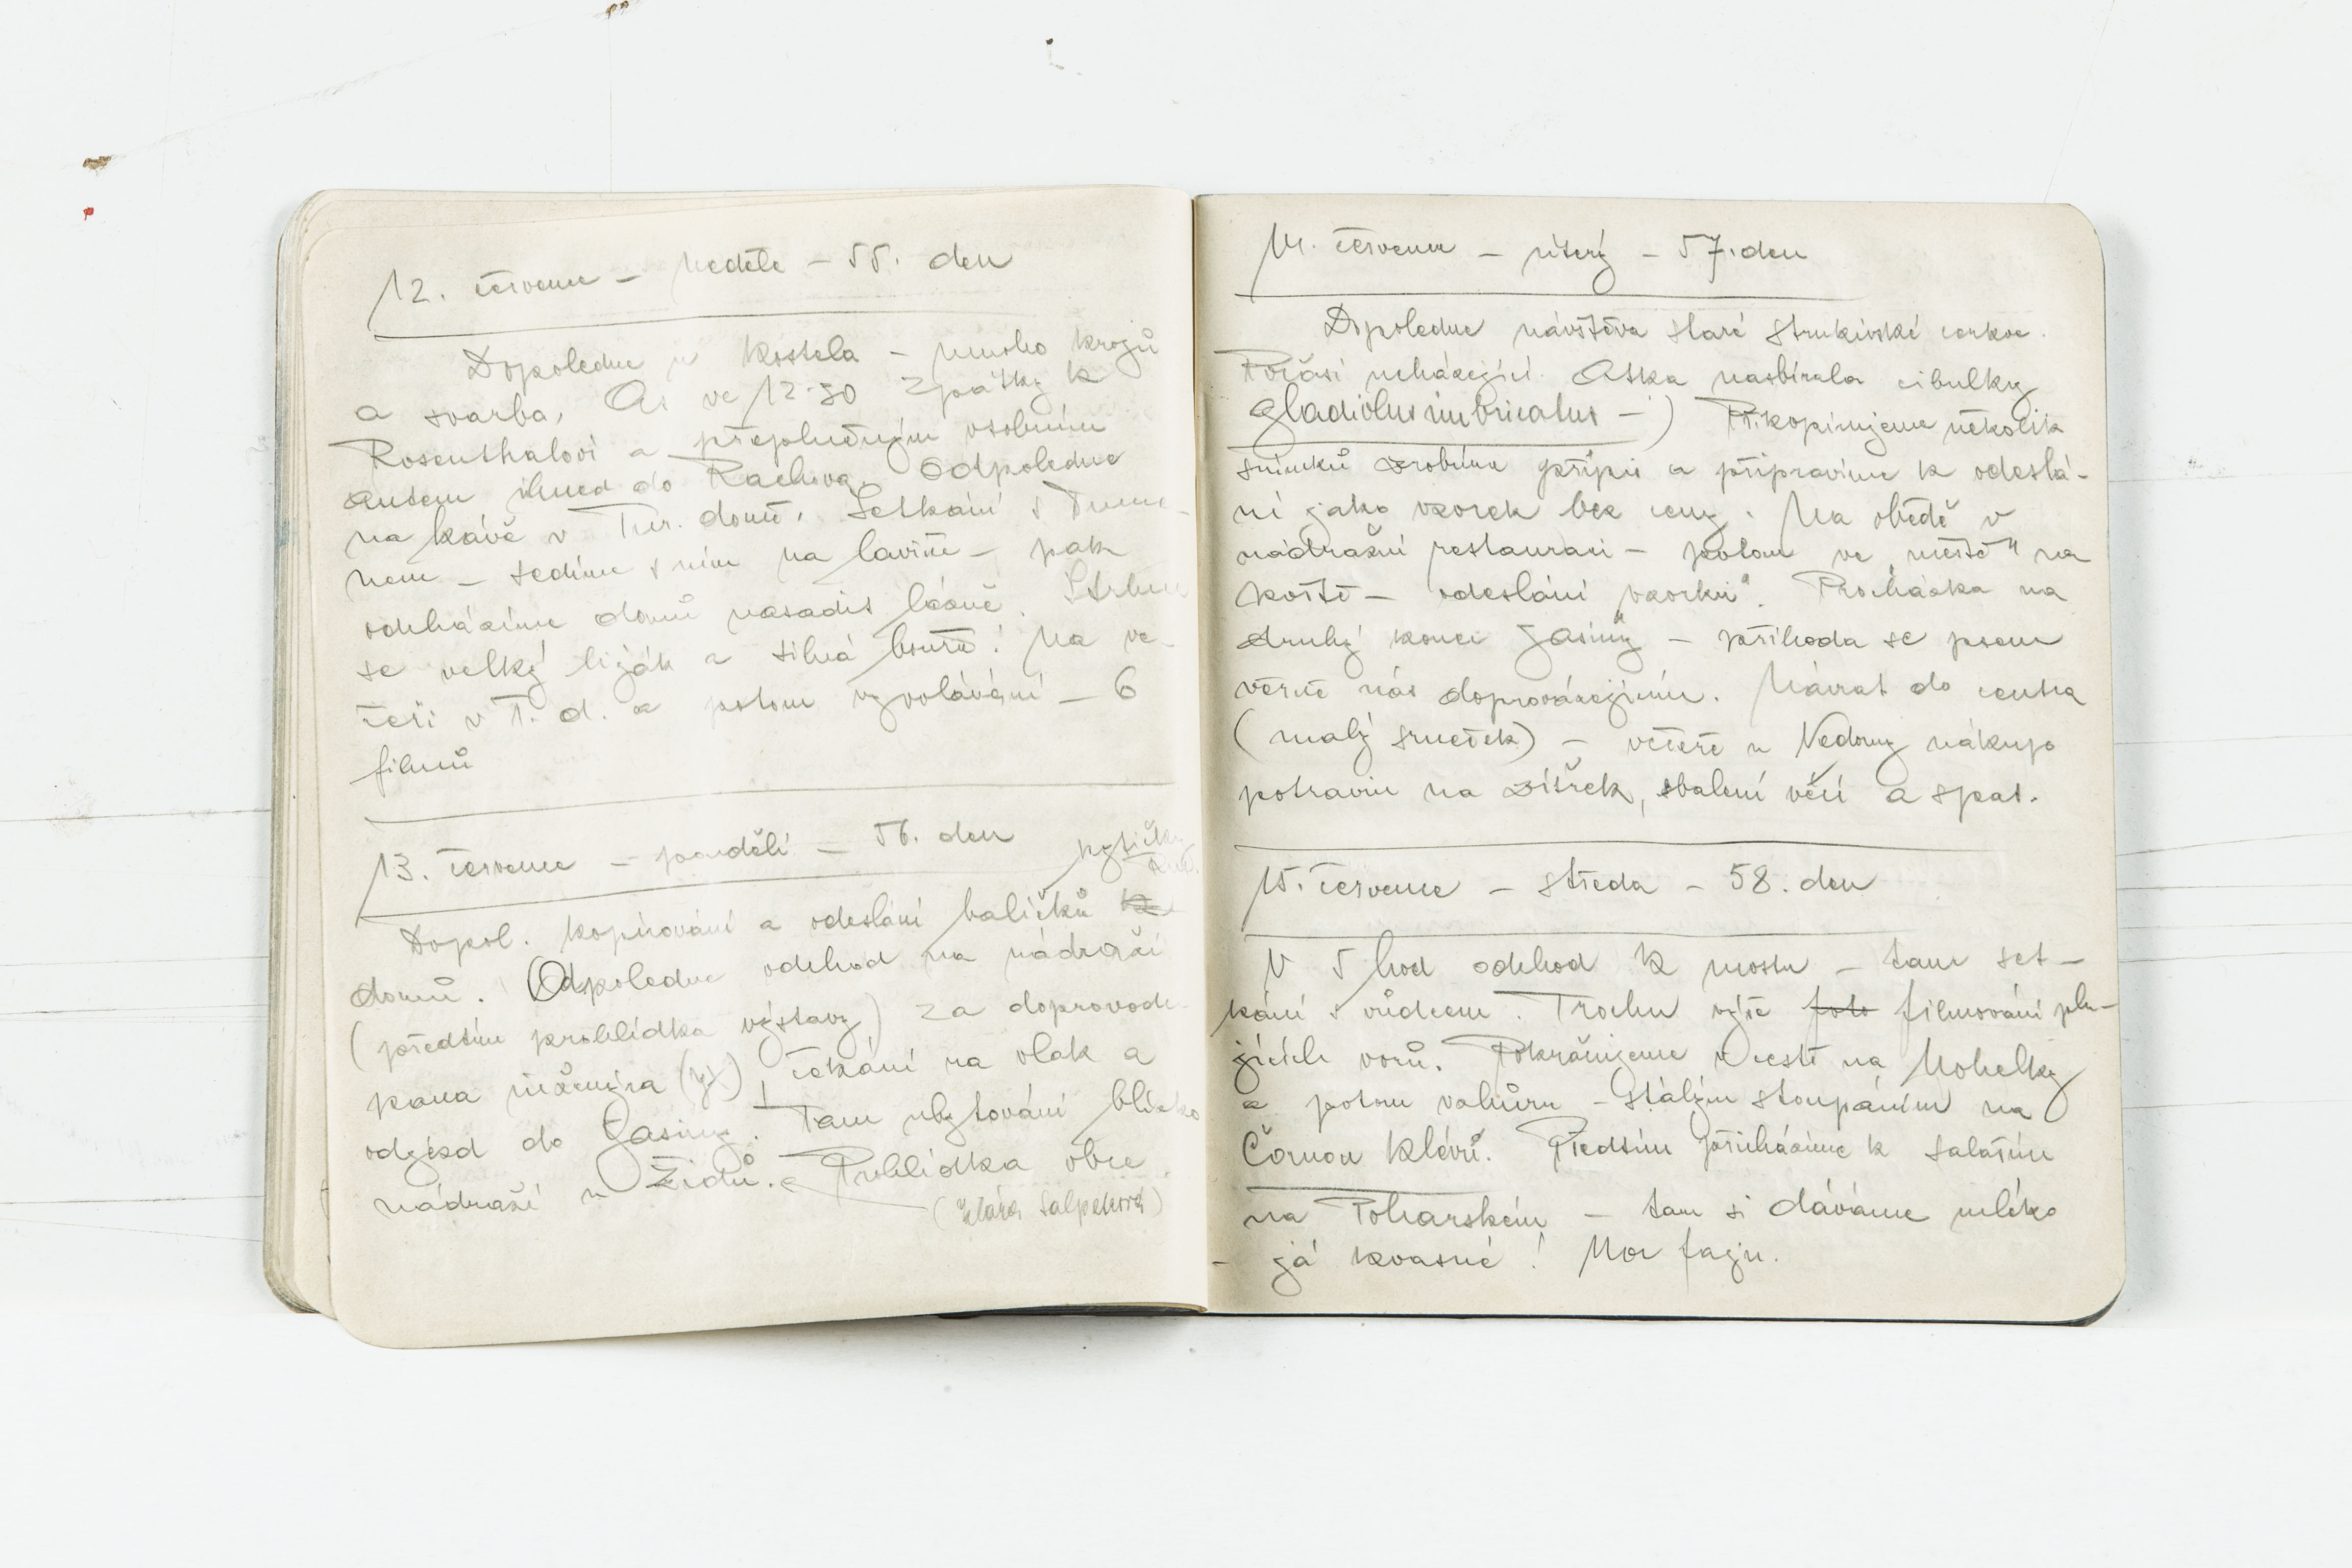 12. července – neděle – 55. den
Dopoledne u kostela – mnoho krojů
a svarba. As ve 12·30 zpátky k
Rosenthalovi a přeplněným osobním
autem ihned do Rachova. Odpoledne
na kávě v Tur. domě. Setkání s
nem – sedíme s ním na lavičce – pak
odcházíme domů nasadit lázně. Strhnul
se velký liják a silná bouře! Na ve-
čeři v T. d. a potom vyvolávání – 6
filmů
13. července – pondělí – 56. den
pytlíčky
Dopol. kopírování a odeslání balíčků
domů. Odpoledne odchod na nádraží
(předtím prohlídka výstavy) za doprovodu
pana inženýra čekání na vlak a
odjezd do Jasiny. Tam ubytování blízko
nádraží u Židů. Prohlídka obce.
(Klára)
14. července – úterý – 57. den
Dopoledne návštěva staré strukivské cerkve.
Počasí ucházející. Aska nasbírala cibulky
Gladiolus imbricatus –) Přikopírujeme několik
snímků zrobíme přípis a připravíme k odeslá-
ní jako vzorek bez ceny. Na obědě v
nádražní restauraci – potom ve „městě" na
poště – odeslání „vzorků". Procházka na
druhý konec Jasiny – příhoda se psem
věrně nás doprovázejícím. Návrat do centra
(malý smeček) – večeře u Vedomy nákup
potravin na zítřek, sbalení věcí a spat.
15. července – středa – 58. den
V 5 hod odchod k mostu – tam set-
kání s vůdcem. Trochu výše foto filmování plu-
jících vorů. Pokračujeme v cestě na Mohelky
a potom vzhůru – Stálým stoupáním na
Čornou Klévu. Předtím přicházíme k salaším
na Poharském – tam si dáváme mléko
– já kvasné! Moc fajn.